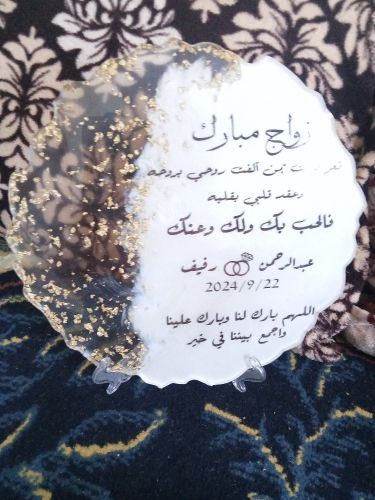 زواج مبارك
تمن آلفت روحي بروحه
وعقد قلبي بقلبه
فالحب بك ولك وعنك
عبدالرحمن رفيف
2024/9/22
اللهم بارك لنا وبارك علينا
واجمع بيننا في خير